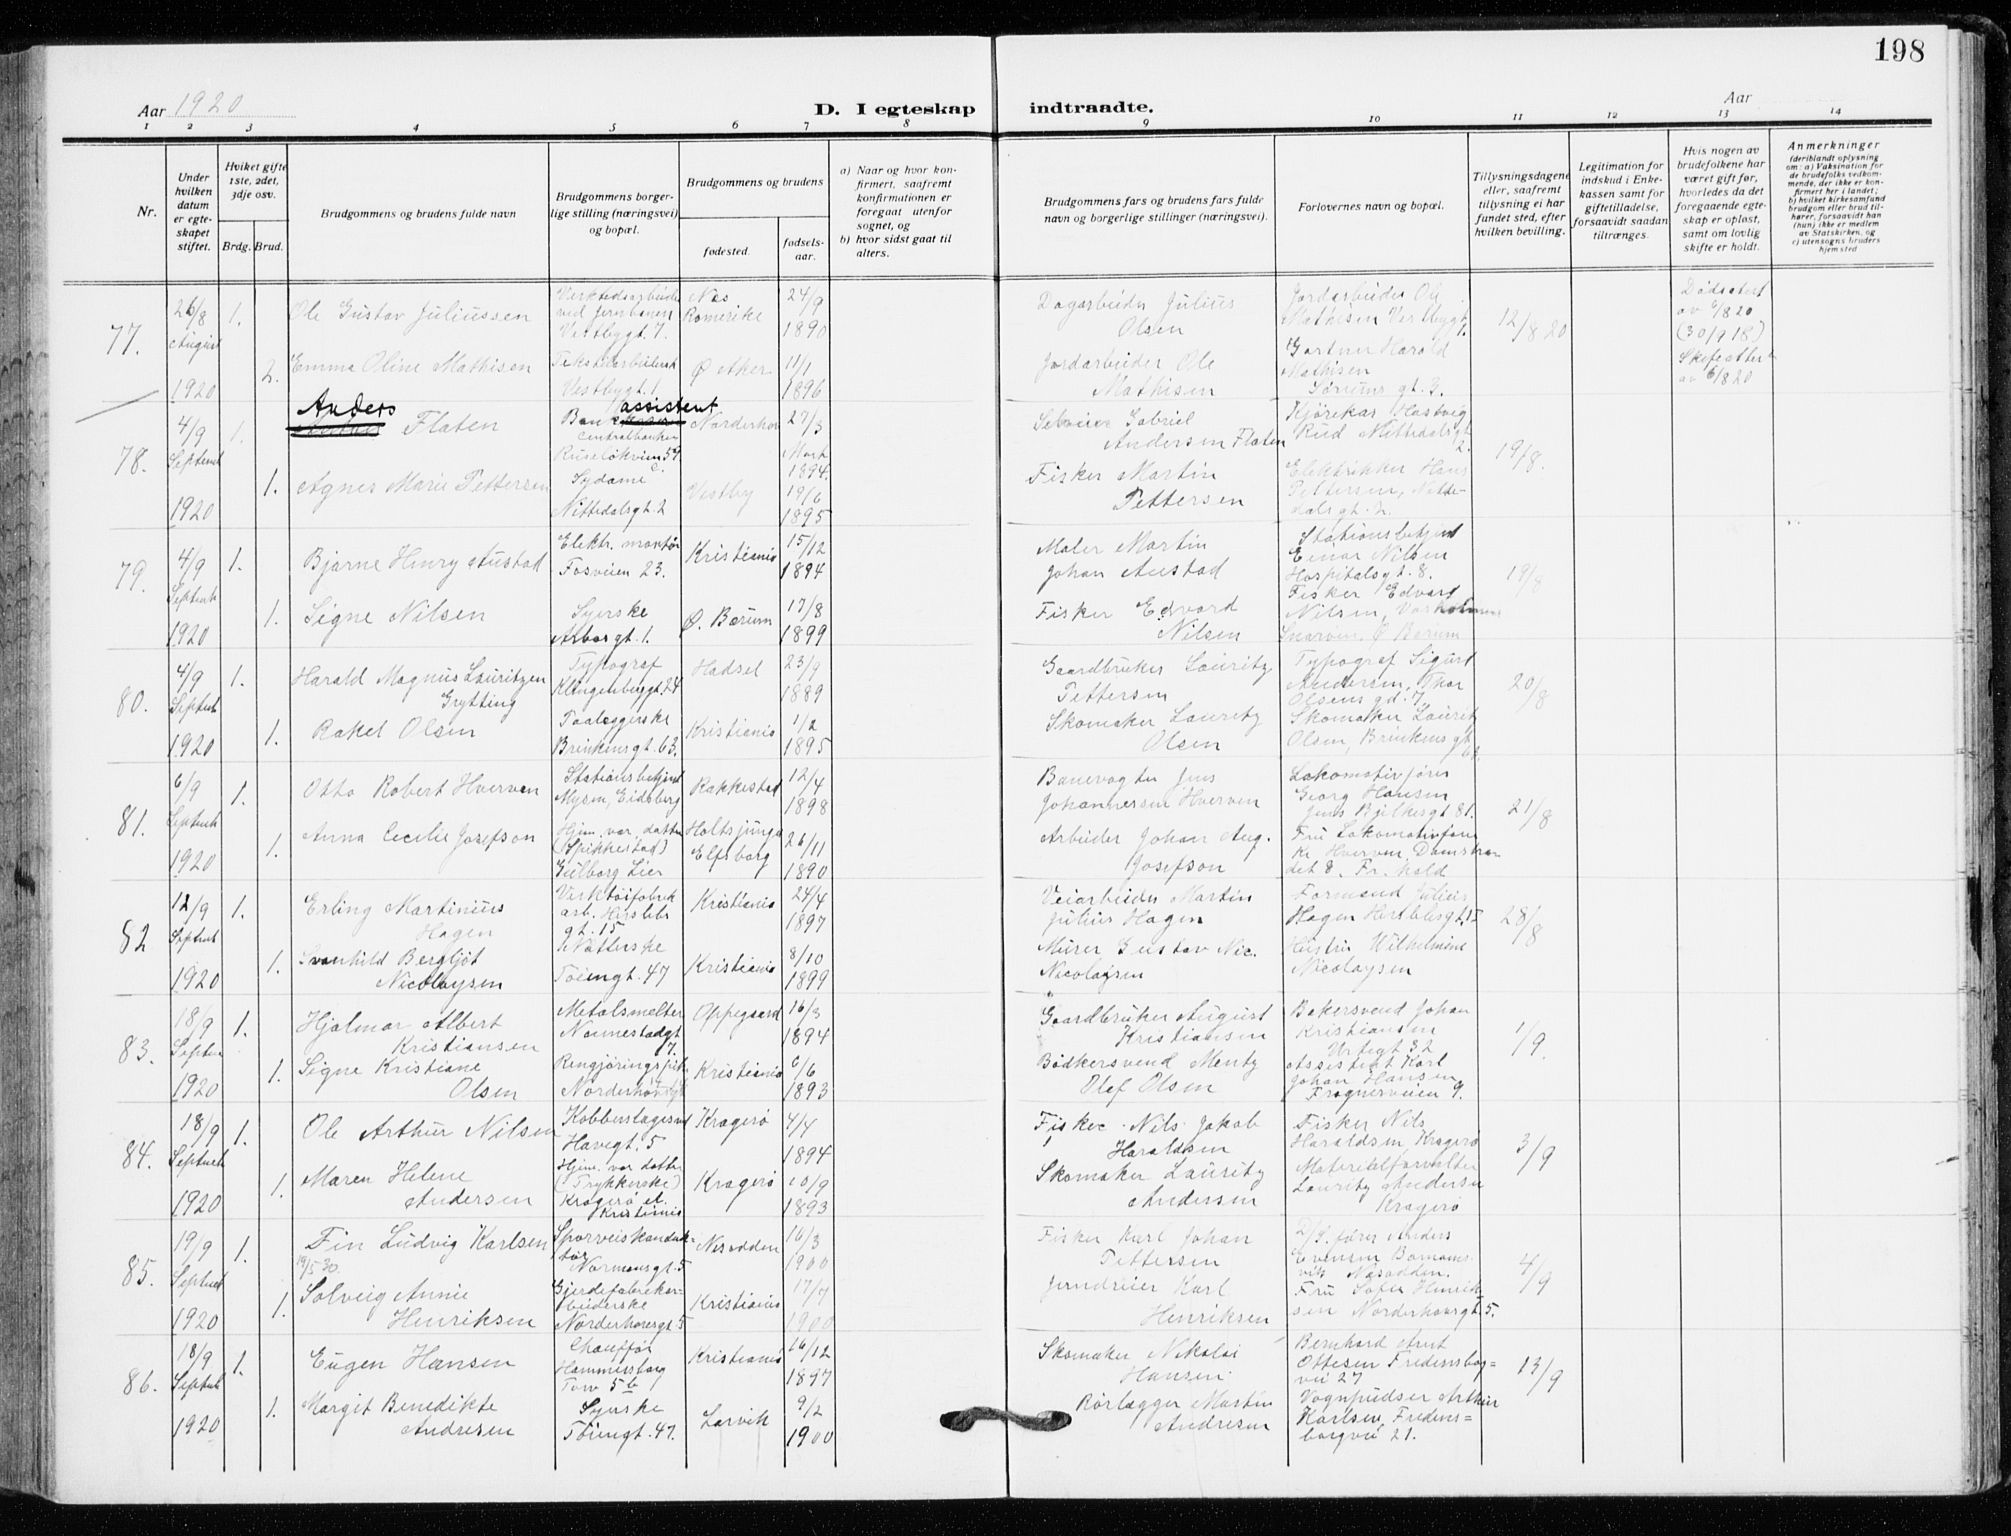 198
Aar 1920
D. I egteskap indtraadte.
Aar
1 2 3 4 5 6 7 8 9 10 11 12 13 14
Nr.
Under hvilken datum er egteskapet stiftet.
Hvilket gifte 1ste, 2det, 3dje osv.
Brdg. Brud.
Brudgommens og brudens fulde navn
Brudgommens borgerlige stilling (næringsvei) og bopæl.
Brudgommens og brudens
fødested.
fødselsaar.
a) Naar og hvor konfirmert, saafremt konfirmationen er foregaat utenfor sognet, og
b) hvor sidst gaat til alters.
Brudgommens fars og brudens fars fulde navn og borgerlige stillinger (næringsvei).
Forlovernes navn og bopæl.
Tillysningsdagene eller, saafremt tillysning ei har fundet sted, efter hvilken bevilling.
Legitimation for indskud i Enkekassen samt for giftetilladelse, forsaavidt saadan tiltrænges.
Hvis nogen av brudefolkene har været gift før, hvorledes da det foregaaende egteskap er opløst, samt om lovlig skifte er holdt.
Anmerkninger
(deriblandt oplysning om: a) Vaksination for de brudefolks vedkommende, der ikke er konfirmert her i landet; b) hvilket kirkesamfund brudgom eller brud tilhører, forsaavidt han (hun) ikke er medlem av Statskirken, og c) utensogns bruders hjemsted
77. 26/8 August 1920
1. Ole Gustav Juliussen
Verkstedsarbeider ved Jernbanen Vestbygt. 7.
Nes Romerike
24/9 1890
Dagarbeider Julius Olsen
Jordarbeider Ole Mathisen Vestbygt. 1.
12/8 20
2. Emma Oline Mathisen
Vestbygt. 1.
Ø Aker
11/1 1896
Jordarbeider Ole Mathisen
Gartner Harald Mathisen Sørums gt. 3.
Dødsattest av 6/8 20 (30/9 18)
Skifteattest av 6/8 20
78. 4/9 Septemb 1920
1. Anders Flaten
Bankassistent Centralbanken
Ruseløkveien 59
27/3 1894
Gabriel Andersen Flaten
Rud Nittedalsgt. 2.
19/8.
1. Agnes Marie Pettersen
Sydame Nittedalsgt. 2
Vestby
19/6 1895
Fisker Martin Pettersen
Elektrikker Hans Pettersen, Nittedalsgt. 2.
79. 4/9 Septemb 1920
1. Bjarne Henry Austad
Elektr. montør Fosveien 23.
Kristiania
15/12 1894
Maler Martin Johan Austad
Stationsbetjent Einar Nilsen Hospitalsgt. 8.
19/8
1. Signe Nilsen
Syerske
Ø. Bærum
17/8 1899
Fisker Edvard Nilsen
Fisker Edvard Nilsen,
Snarøen Ø Bærum
80. 4/9 Septemb 1920
1. Harald Magnus Lauritzen Grytting
Typograf Klingenberggt. 24
Hadsel
23/9 1889
Gaardbruker Lauritz Pettersen
Typograf Sigurd Andersen, Thor Olsens gd. 7.
20/8
1. Rakel Olsen
Brinkensgt. 63.
Kristiania
1/2 1895
Skomaker Lauritz Olsen
Skomaker Lauritz Olsen, Brinkens gt. 63.
81. 6/9 Septemb 1920
1. Otto Robert Hverven
Stationsbetjent Mysen, Eidsberg
Rakkestad
12/4 1898
Banevogter Jens Johannersen Hverven
Lokomotivfører Georg Hansen Jens Bjelkesgt 81.
21/8
1. Anna Cecilie Josefson
Hjem. vær. datter (Spikkestad) Gulborg Lier
Holtsjunga Elfsborg
26/11 1890
Arbeider Johan Aug. Josefson
Fru Lokomotivfører Kr Hverven, Damstrædet 8. Fr. hald
82 12/9 Septemb 1920
1. Erling Martinius Hagen
Verktøifabrik arb. Herslebs gt. 15
Kristiania
24/4 1897
Veiarbeider Martin Julius Hagen
Formand Julius Hagen Herslebsgt. 15
28/8
1. Svanhild Bergljot Nicolaysen
Tøiengt. 47
Kristiania
8/10 1899
Murer Gustav Nic. Nicolaysen
Hustru Wilhelmine Nicolaysen
83. 18/9 Septem 1920
1. Hjalmar Albert Kristiansen
Metalsmelter Nannestadgt 7.
Oppegaard
16/3 1894
Gaardbruker August Kristiansen
Bakersvend Johan Kristiansen Urtegt 32
1/9.
1. Signe Kristiane Olsen
Rengjøringspike
Kristiania
6/6 1893
Bødkersvend Mentz Olef Olsen
Assistent Karl Johan Hansen Frognerveien 9.
84. 18/9 Septemb 1920
1. Ole Arthur Nilsen
Kobberslagersvd Havegt. 5
Kragerø
4/4 1894
Fisker Nils Jakob Haraldsen
Fisker Nils Haraldsen Kragerø
3/9
1. Maren Helene Andersen
Hjem. vær datter (Trykkerske) Kragerø et. Kristiania
Kragerø
10/9 1893
Skomaker Lauritz Andersen
Materialforvalter Lauritz Andersen Kragerø
85. 19/9 Septemb 1920
1. Fin Ludvig Karlsen
Sporveiskonduktør Normansgt. 5
Nesodden
16/3 1900
Fisker Karl Johan Pettersen
fører Anders Evensen
Nesodden.
4/9
19/5 30.
1. Solveig Annie Henriksen
Norderhovsgt. 5
Kristiania
17/7 1900
Jerndreier Karl Henriksen
Fru Sofie Henriksen Norderhovsgt. 5.
86. 18/9 Septemb 1920
1. Eugen Hansen
Chauffør Hammersborg Torv 5b
Kristiania
16/12 1897
Skomaker Nikolai Hansen
Bernhard Arnt Ottesen Fredensborgvei 27
13/9
1. Margit Benedikte Andresen
Syerske Tøiengt. 47.
Larvik
9/2 1900
Rørlægger Martin Andresen
Vognpudser Arthur Karlsen, Fredensborgvei 21.